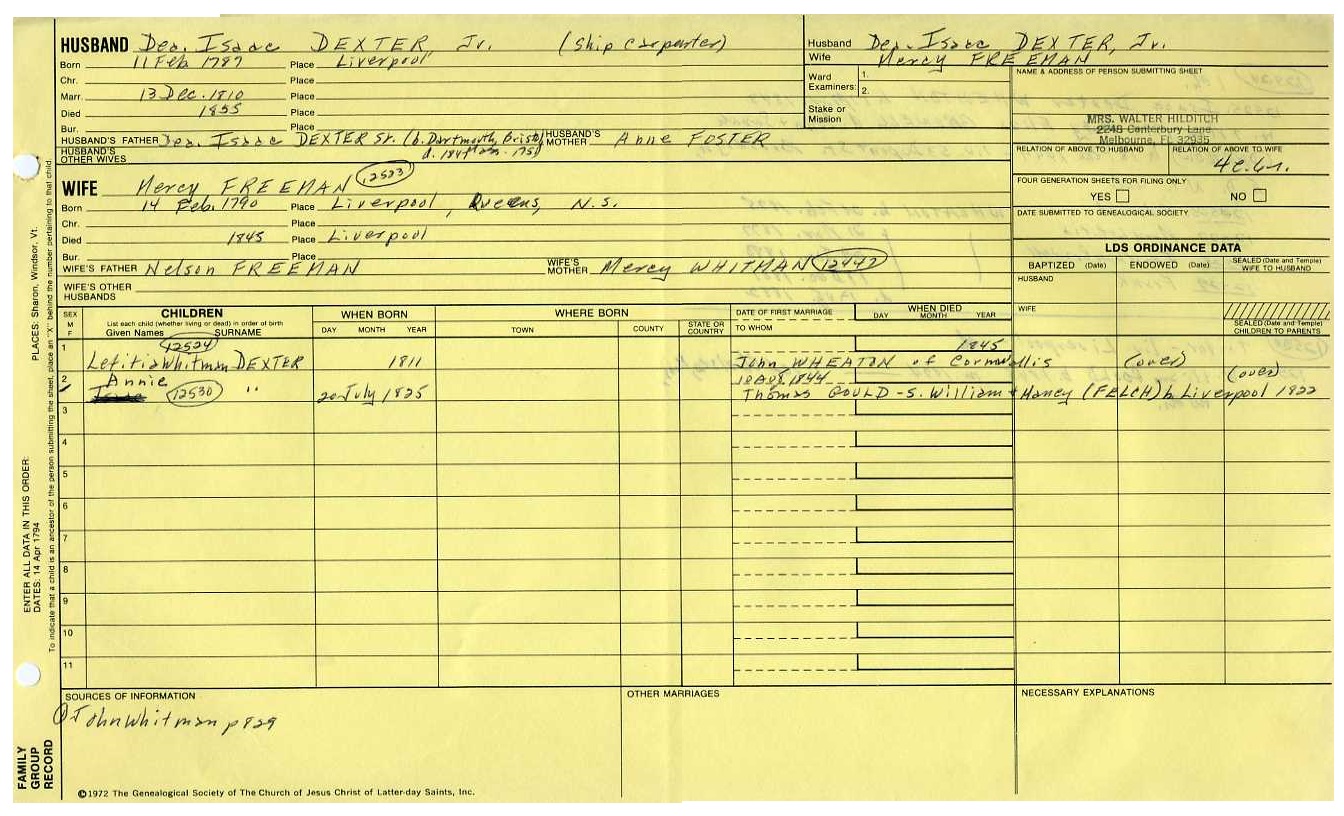 HUSBAND Dea. Isaac DEXTER, Jr. (Ship Carpenter)
Born 11 Feb 1787 Place Liverpool
Chr. Place
Marr. 13 Dec. 1810 Place
Died 1855 Place
Bur. Place
HUSBAND'S FATHER Dea. Isaac DEXTER Sr. (b. Dartmouth, Bristol, Mass. 1751 d. 184 HUSBAND'S MOTHER Anne FOSTER
HUSBAND'S OTHER WIVES
WIFE Mercy FREEMAN 12523
Born 14 Feb. 1790 Place Liverpool, Queens, N.S.
Chr. Place
Died 1845 Place Liverpool
Bur. Place
WIFE'S FATHER Nelson FREEMAN WIFE'S MOTHER Mercy WHITMAN 12442
WIFE'S OTHER HUSBANDS
Husband Dea. Isaac DEXTER, Jr.
Wife Mercy FREEMAN
Ward Examiners: 1. 2.
Stake or Mission
NAME & ADDRESS OF PERSON SUBMITTING SHEET
MRS. WALTER HILDITCH
2248 Canterbury Lane
Melbourne, FL 32935
RELATION OF ABOVE TO HUSBAND RELATION OF ABOVE TO WIFE
FOUR GENERATION SHEETS FOR FILING ONLY
YES NO
DATE SUBMITTED TO GENEALOGICAL SOCIETY
LDS ORDINANCE DATA
BAPTIZED (Date) ENDOWED (Date) SEALED (Date and Temple) WIFE TO HUSBAND
HUSBAND
WIFE
SEALED (Date and Temple) CHILDREN TO PARENTS
SEX M F CHILDREN List each child (whether living or dead) in order of birth Given Names SURNAME
WHEN BORN DAY MONTH YEAR
WHERE BORN TOWN COUNTY STATE OR COUNTRY
DATE OF FIRST MARRIAGE TO WHOM
WHEN DIED DAY MONTH YEAR
1 12524 Letitia Whitman DEXTER 1811 1845
John WHEATON of Cornwallis (over) (over)
2 Annie 12530 " 20 July 1825 10 Aug 1844
Thomas GOULD - S. William + Nancy (FELCH) b Liverpool 1822
3
4
5
6
7
8
9
10
11
SOURCES OF INFORMATION
John Whitman p 829
OTHER MARRIAGES
NECESSARY EXPLANATIONS
FAMILY GROUP RECORD
ENTER ALL DATA IN THIS ORDER:
DATES: 14 Apr 1794
PLACES: Sharon, Windsor, Vt.
To indicate that a child is an ancestor of the person submitting the sheet, place an "X" behind the number pertaining to that child.
©1972 The Genealogical Society of The Church of Jesus Christ of Latter-day Saints, Inc.